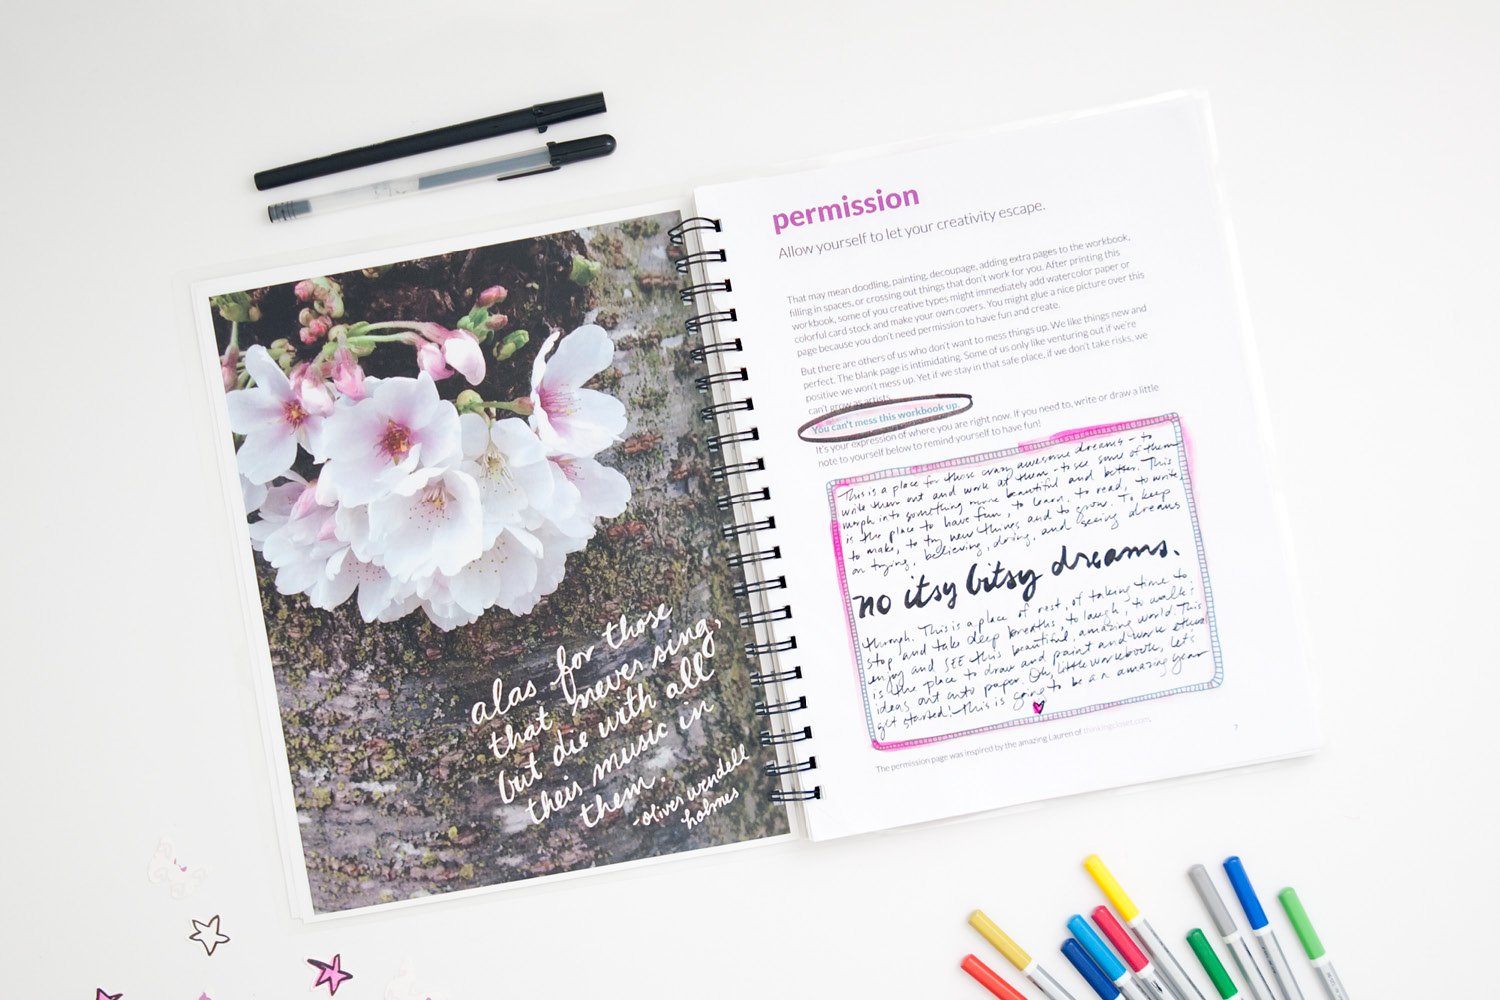 alas for those
that never sing,
but die with all
their music in
them.
-oliver wendell
holmes
permission
Allow yourself to let your creativity escape.
That may mean doodling, painting, decoupage, adding extra pages to the workbook,
filling in spaces, or crossing out things that don't work for you. After printing this
workbook, some of you creative types might immediately add watercolor paper or
colorful card stock and make your own covers. You might glue a nice picture over this
page because you don't need permission to have fun and create.
But there are others of us who don't want to mess things up. We like things new and
perfect. The blank page is intimidating. Some of us only like venturing out if we're
positive we won't mess up. Yet if we stay in that safe place, if we don't take risks, we
can't grow as artists.
You can't mess this workbook up.
It's your expression of where you are right now. If you need to, write or draw a little
note to yourself below to remind yourself to have fun!
This is a place for those crazy awesome dreams - to
write them out and work at them - to see some of them
morph into something more beautiful and better. This
is the place to have fun, to learn, to read, to write,
to make, to try new things and to grow. To keep
on trying, believing, doing, and seeing dreams
no itsy bitsy dreams.
through. This is a place of rest, of taking time to
stop and take deep breaths, to laugh, to walk,
enjoy and SEE this beautiful, amazing world. This
is the place to draw and paint and work
ideas out onto paper. Oh, little workbook, let's
get started! This is going to be an amazing year
The permission page was inspired by the amazing Lauren of thinkingcloset.com.
7